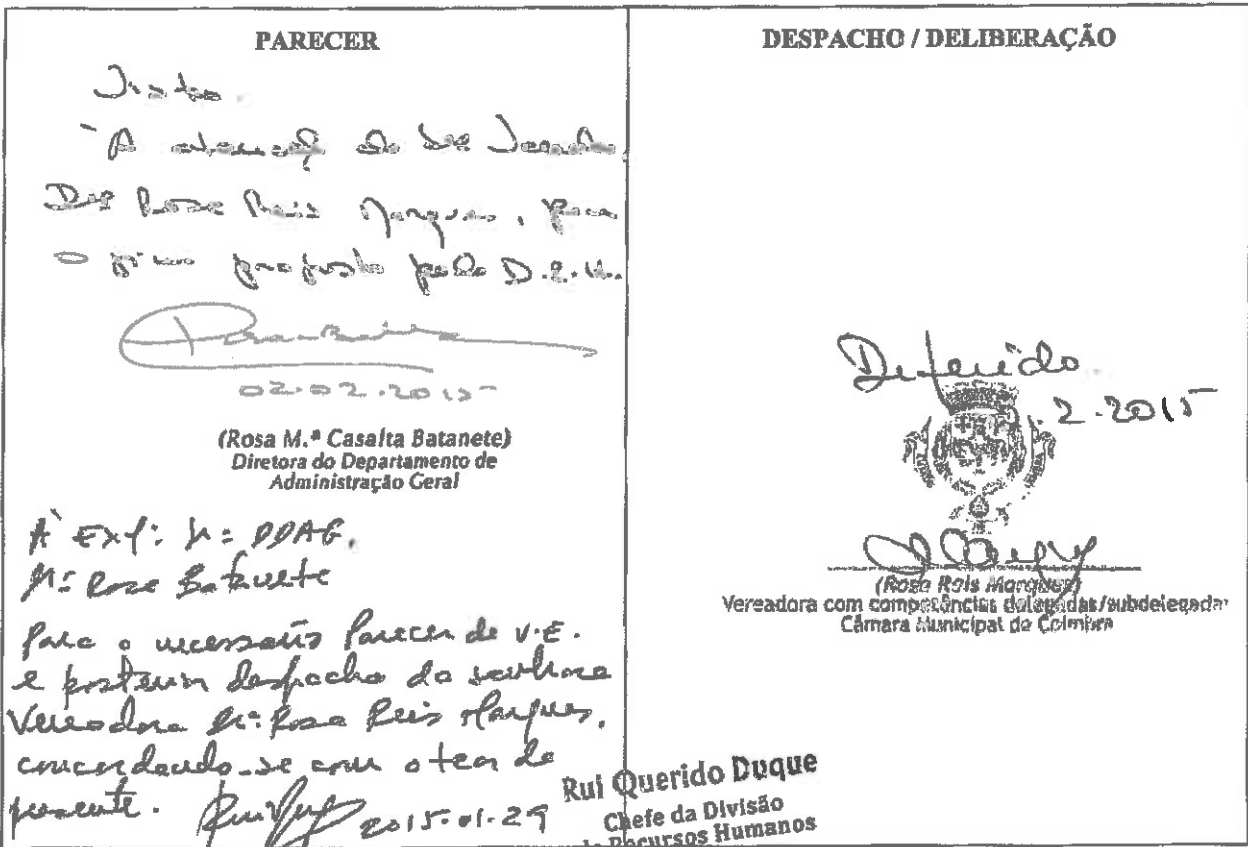 PARECER
Visto.
À atenção da Srª Vereadora
Drª Rosa Reis Marques, para
o proposto pelo D.R.H.
02.02.2015
(Rosa M.ª Casalta Batanete)
Diretora do Departamento de
Administração Geral
À Exª: Srª DDAG.
Drª Rosa Batanete
Para o necessário Parecer de V.E.
e posterior despacho da senhora
Vereadora Drª Rosa Reis Marques,
concordando-se com o teor da
presente.
2015.01.29
Rui Querido Duque
Chefe da Divisão
de Recursos Humanos
DESPACHO / DELIBERAÇÃO
Deferido.
.2.2015
(Rosa Reis Marques)
Vereadora com competências delegadas/subdelegadas
Câmara Municipal de Coimbra